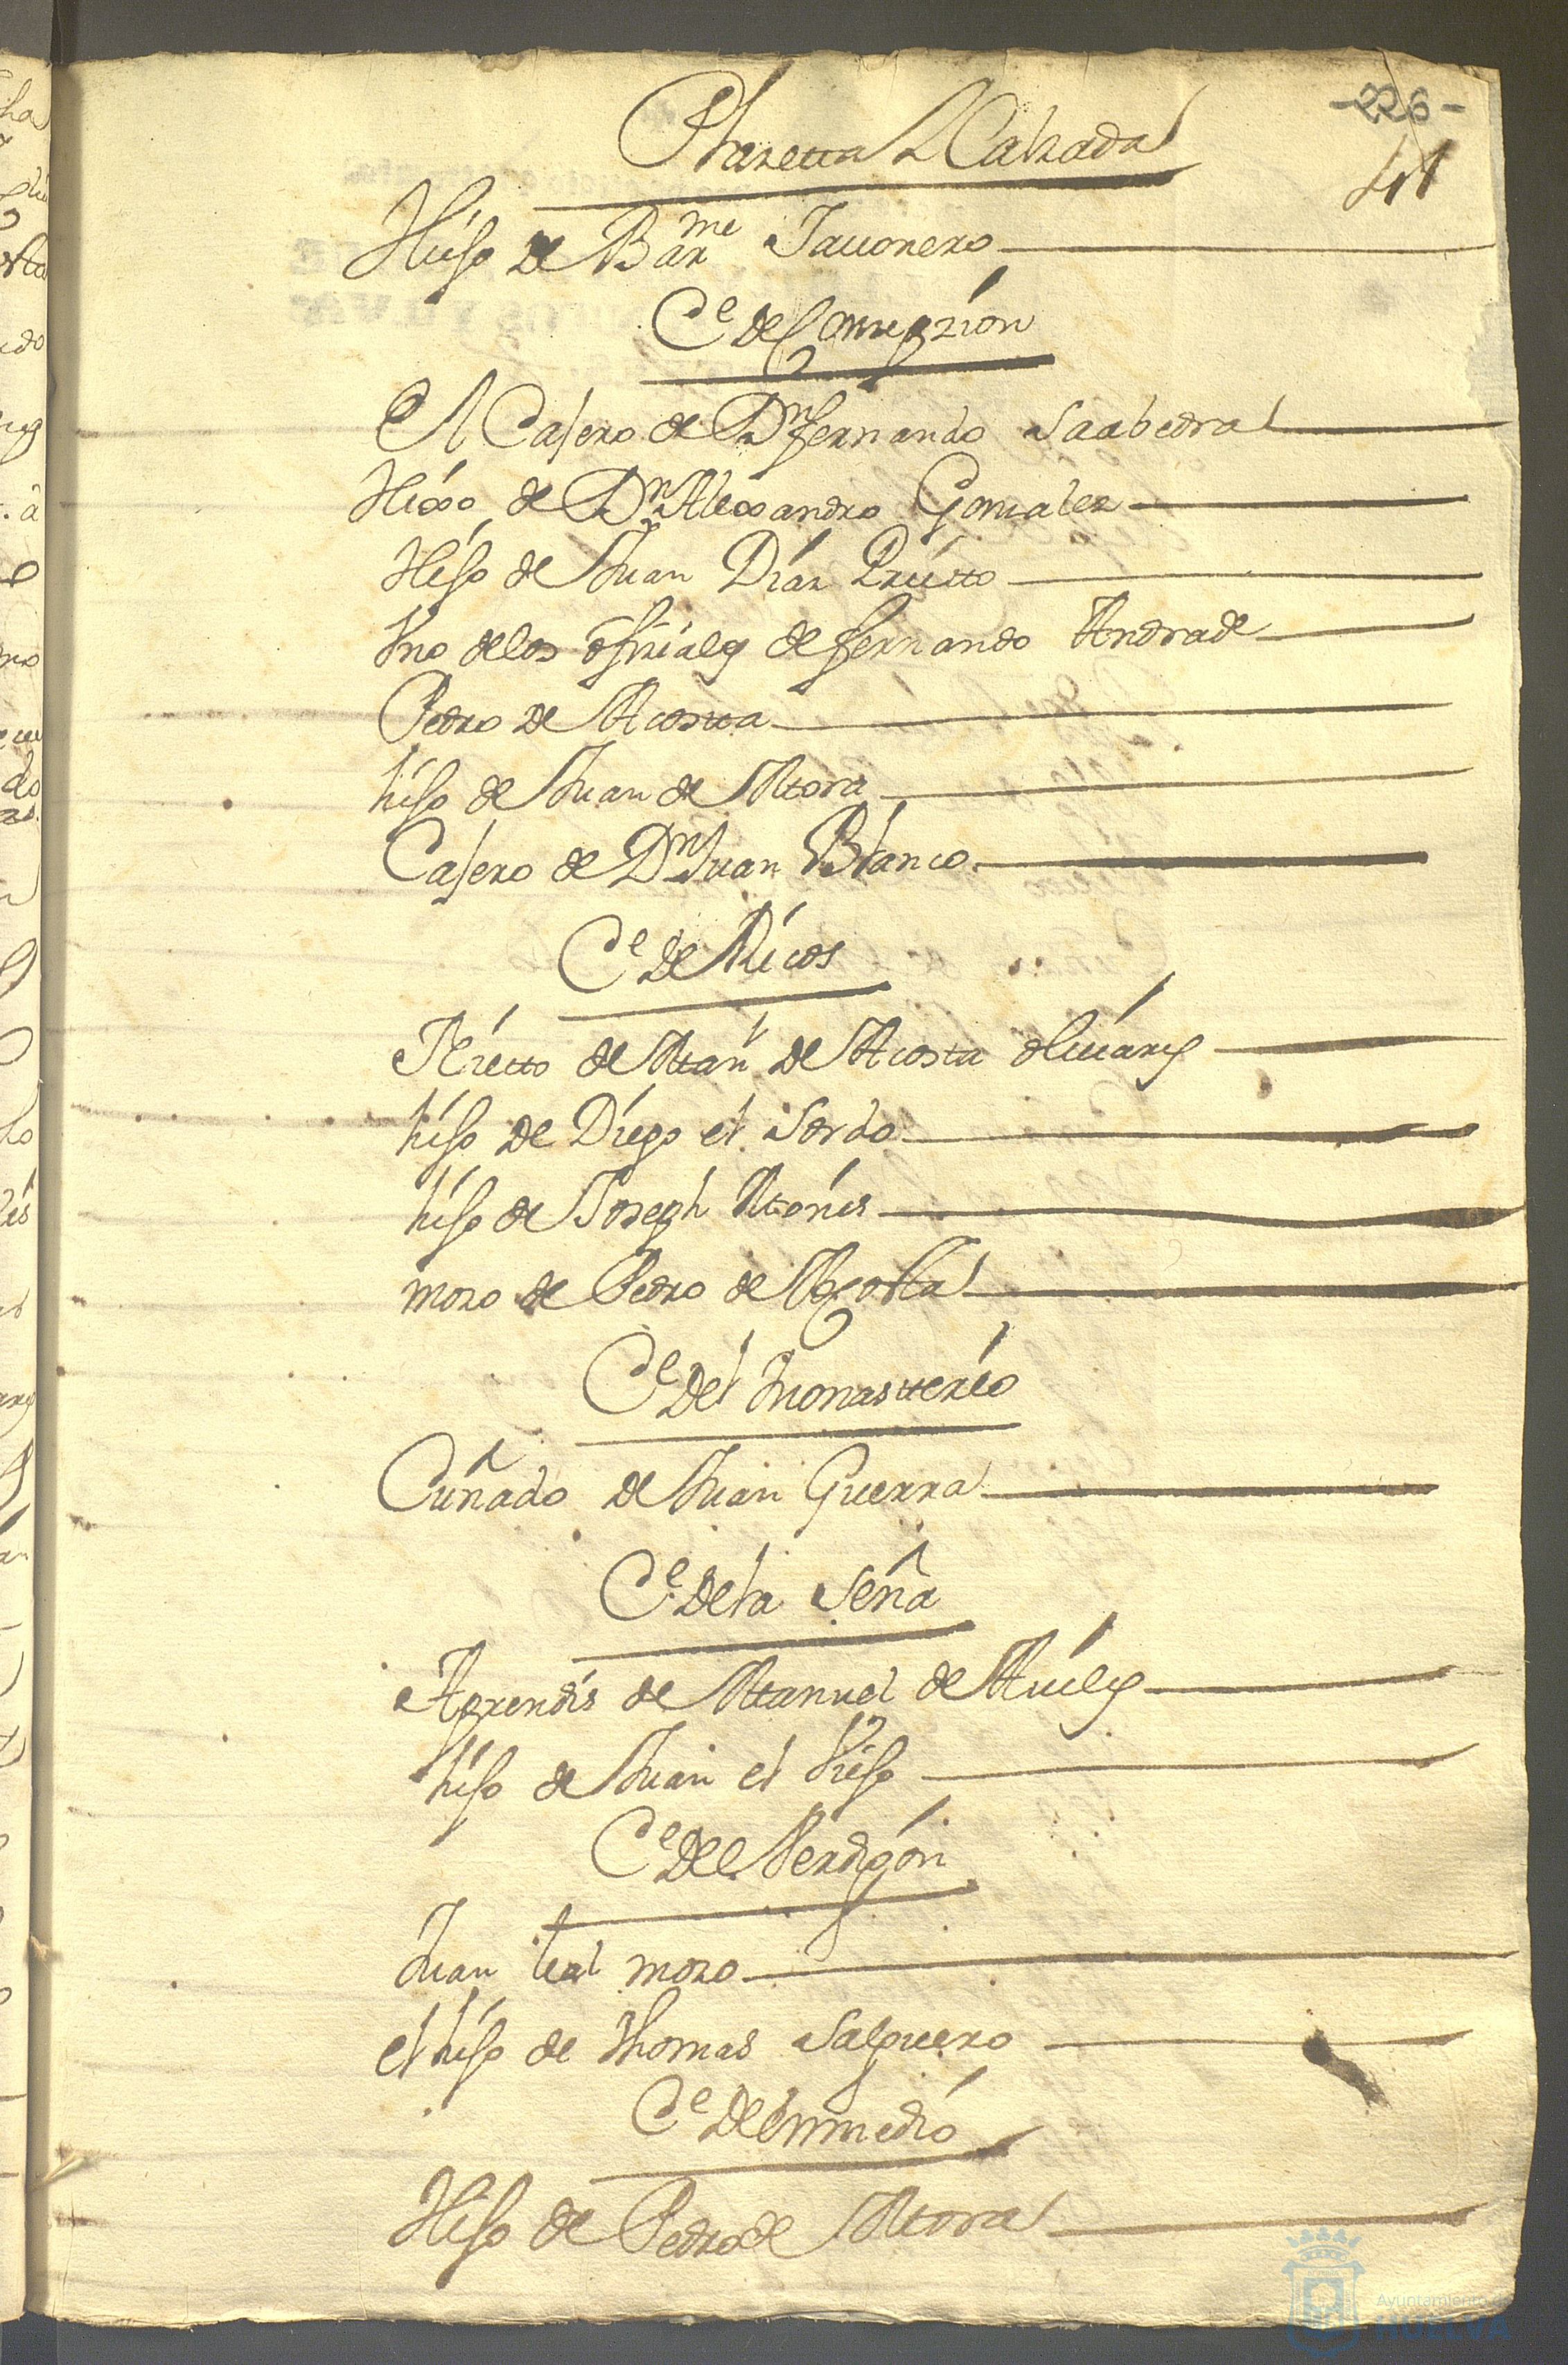 -226-
41
Plazetta L Calzada
Hijo de Barme Jauonero
Ce de Consepzion
El Casero de Dn fernando Saabedra
Hixo de Dn Alexandro Gonzalez
Hijo de Juan Diaz Prietto
Vno de los ofiziales de fernando Andrade
Pedro de Acosta
hijo de Juan de Mora
Casero de Dn Juan Blanco
Ce de Ricos
Nietto de Man de Acosta oliuares
hijo de Diego el Sordo
hijo de Joseph
mozo de Pedro de Acosta
Ce del Monasterio
Cuñado de Juan Guerra
Ce de la Seña
Aprendis de Manuel de Auiles
hijo de Juan el
Ce del Perdigon
Juan leal mozo
el hijo de Thomas Salguero
Ce de Enmedio
Hijo de Pedro de Mora
Ayuntamiento de
HUELVA